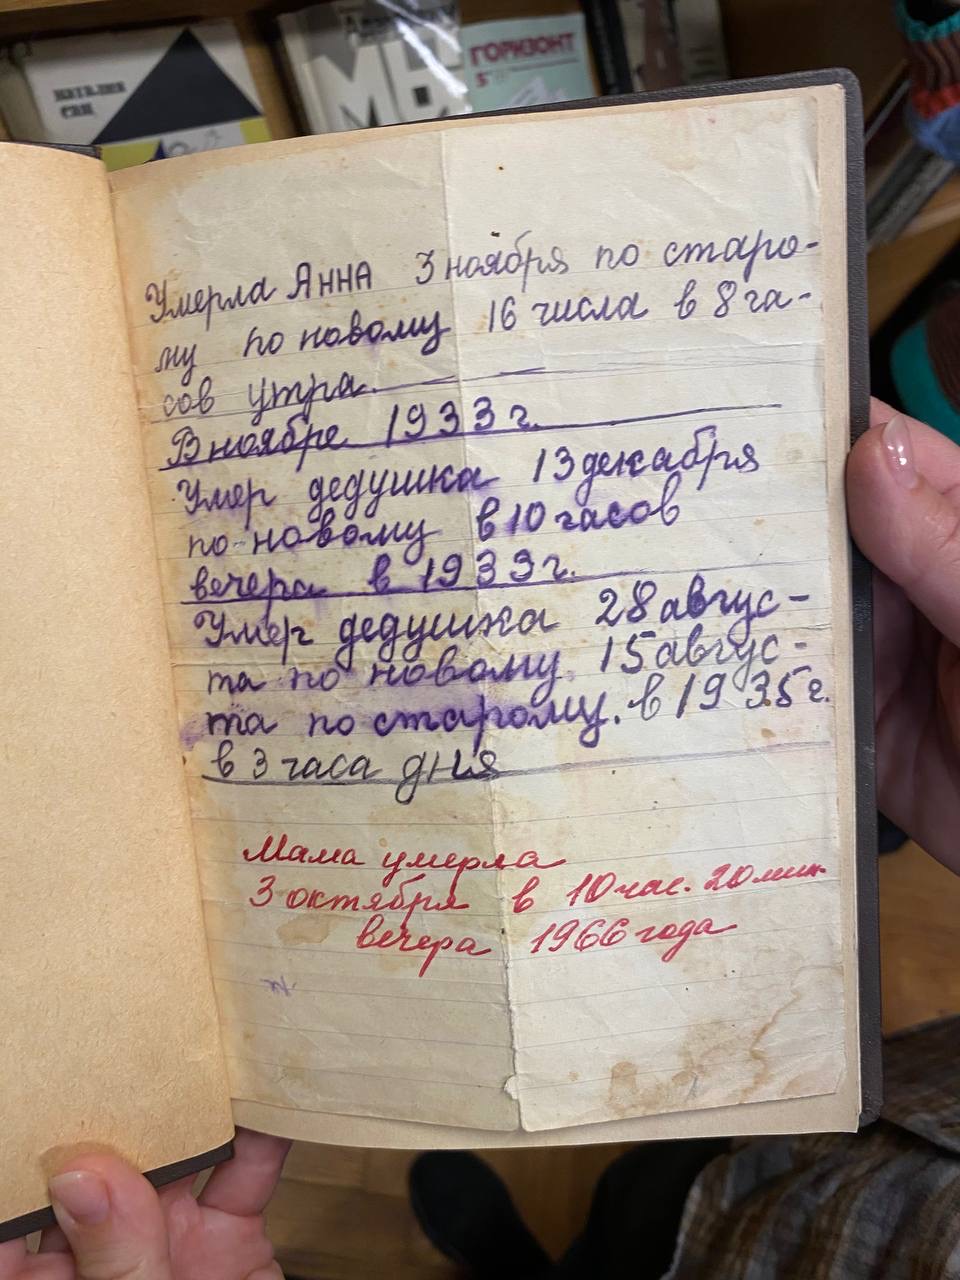 НАТАЛИЯ
САЦ
ГОРИЗОНТ
5
Умерла Анна 3 ноября по старо-
му по новому 16 числа в 8 ча-
сов утра.
В ноябре 1933 г.
Умер дедушка 13 декабря
по-новому в 10 часов
вечера в 1933 г.
Умер дедушка 28 авгус-
та по новому 15 авгус-
та по старому. в 1935 г.
в 3 часа дня
Мама умерла
3 октября в 10 час. 20 мин.
вечера 1966 года